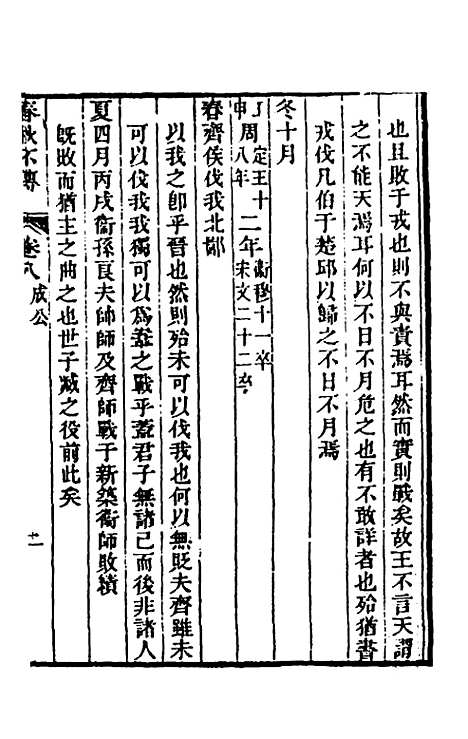 也且敗于戎也則不與責焉耳然而實則戰矣故王不言天謂
之不能天焉耳何以不日不月危之也有不敢詳者也殆猶書
戎伐凡伯于楚邱以歸之不日不月焉
冬十月
申周八年 定王十二年 衞穆十一卒 宋文二十二卒
春齊侯伐我北鄙
以我之卽乎晉也然則殆未可以伐我也何以無貶夫齊雖未
可以伐我我獨可以爲蓋之戰乎蓋君子無諸己而後非諸人
夏四月丙戌衞孫良夫帥師及齊師戰于新築衞師敗績
旣敗而猶主之曲之也世子臧之役前此矣
春秋不傳 卷八 成公 十一